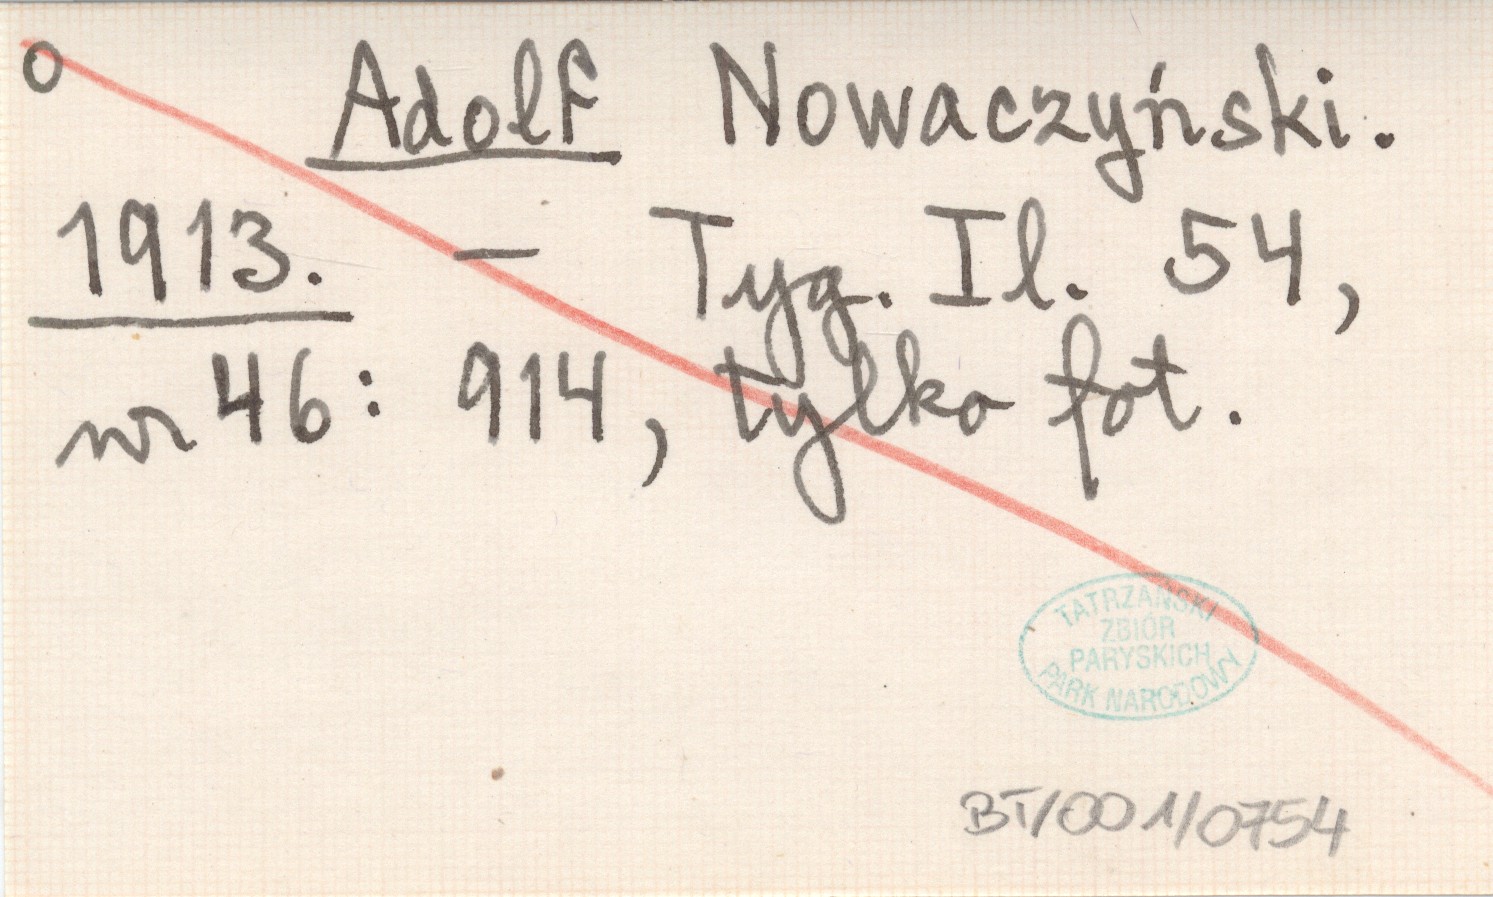 o Adolf Nowaczyński.
1913. – Tyg. Il. 54,
nr 46: 914, tylko fot.
TATRZAŃSKI
ZBIÓR
PARYSKICH
PARK NARODOWY
BT/001/0754